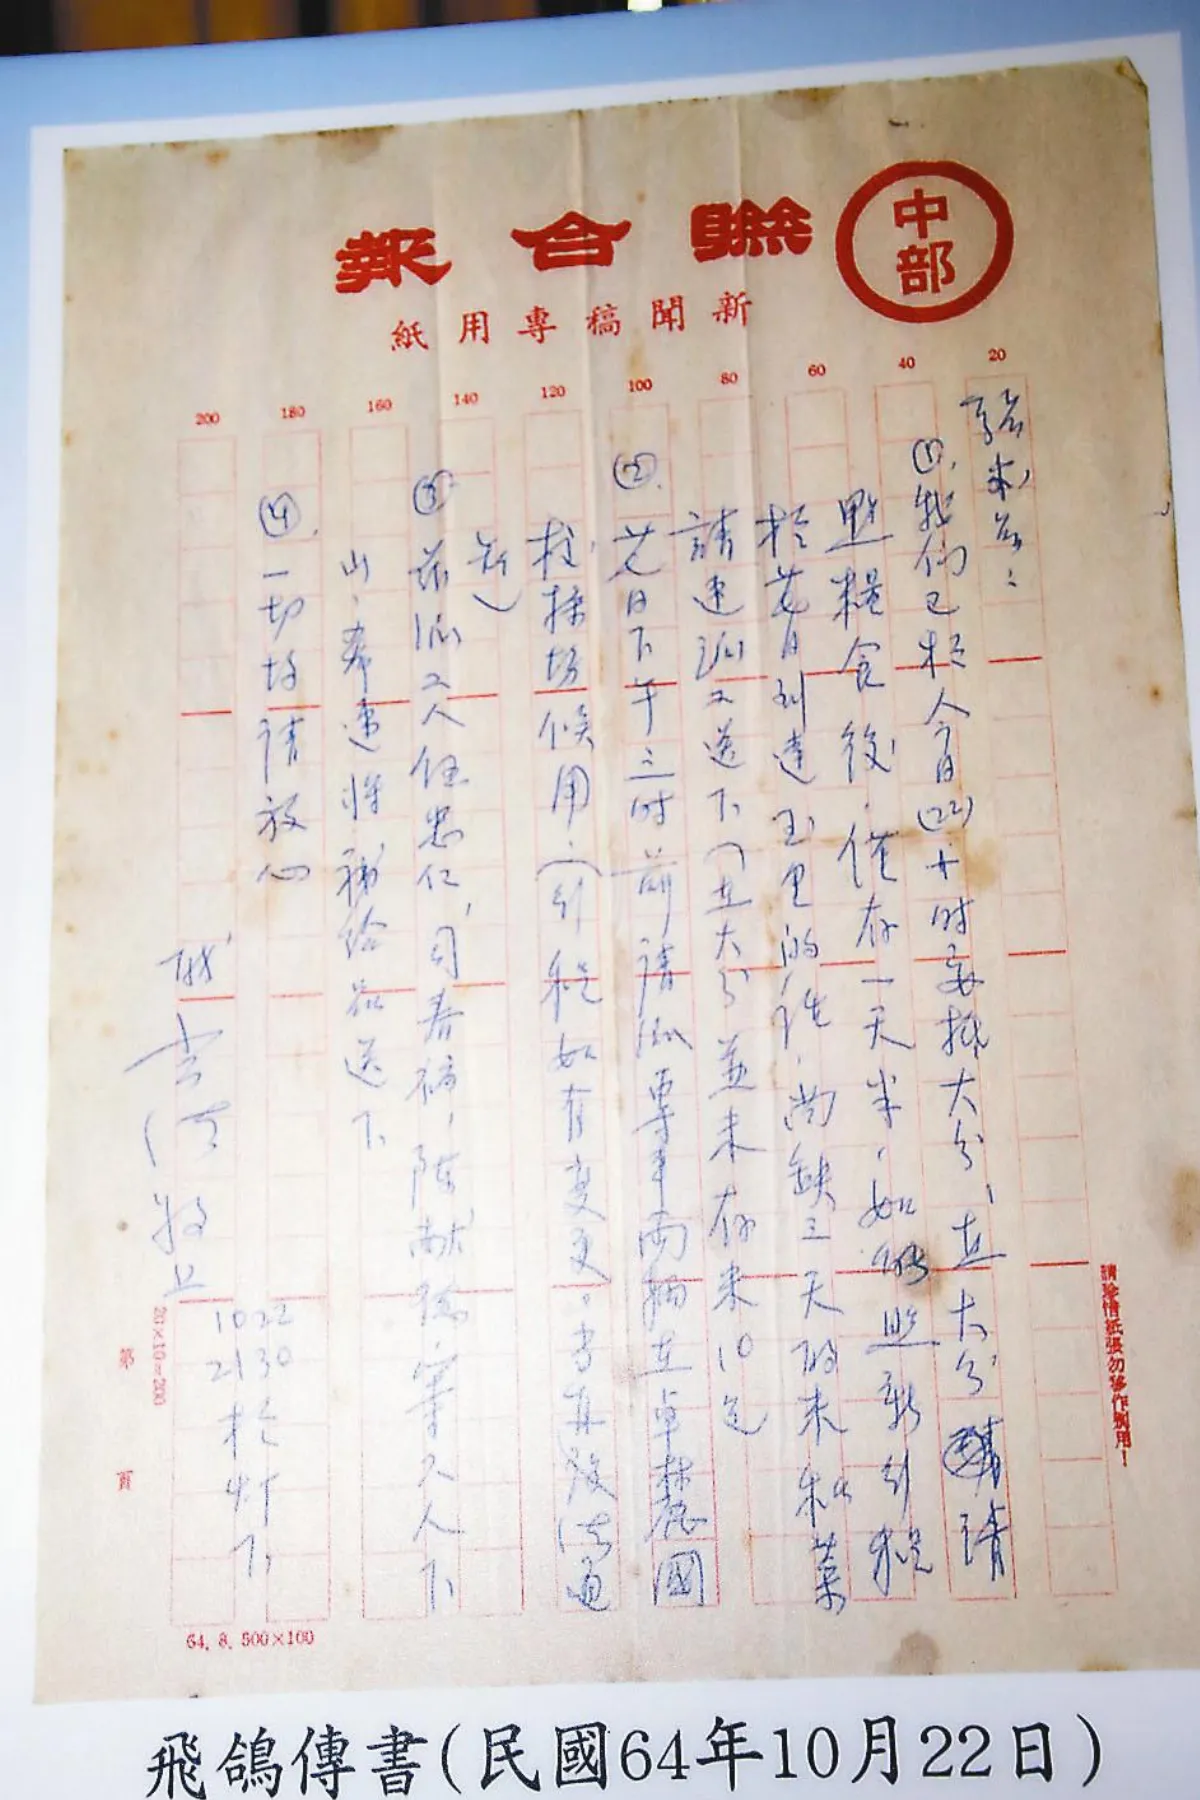 聯合報 中部
新聞稿專用紙
20 40 60 80 100 120 140 160 180 200
①我們已於今日(22)十時安抵大分,在大分請
點糧食後,僅存一天半,如依照新行程
於 日到達玉里的話,尚缺三天的米和菜
請速派工送下(在大分並未存米10包
② 日下午三時前請派專車兩輛在卓麓國
校操場候用,(行程如有變更,當再設法通
知)
③茲派工人伍忠仁,司春福,陳献德, 等 人下
山,希速將補給品送下
④一切均好請放心
敬上
1022
2130於灯下
請珍惜紙張勿移作別用!
20×10=200
第 頁
64. 8. 500×100
飛鴿傳書(民國64年10月22日)